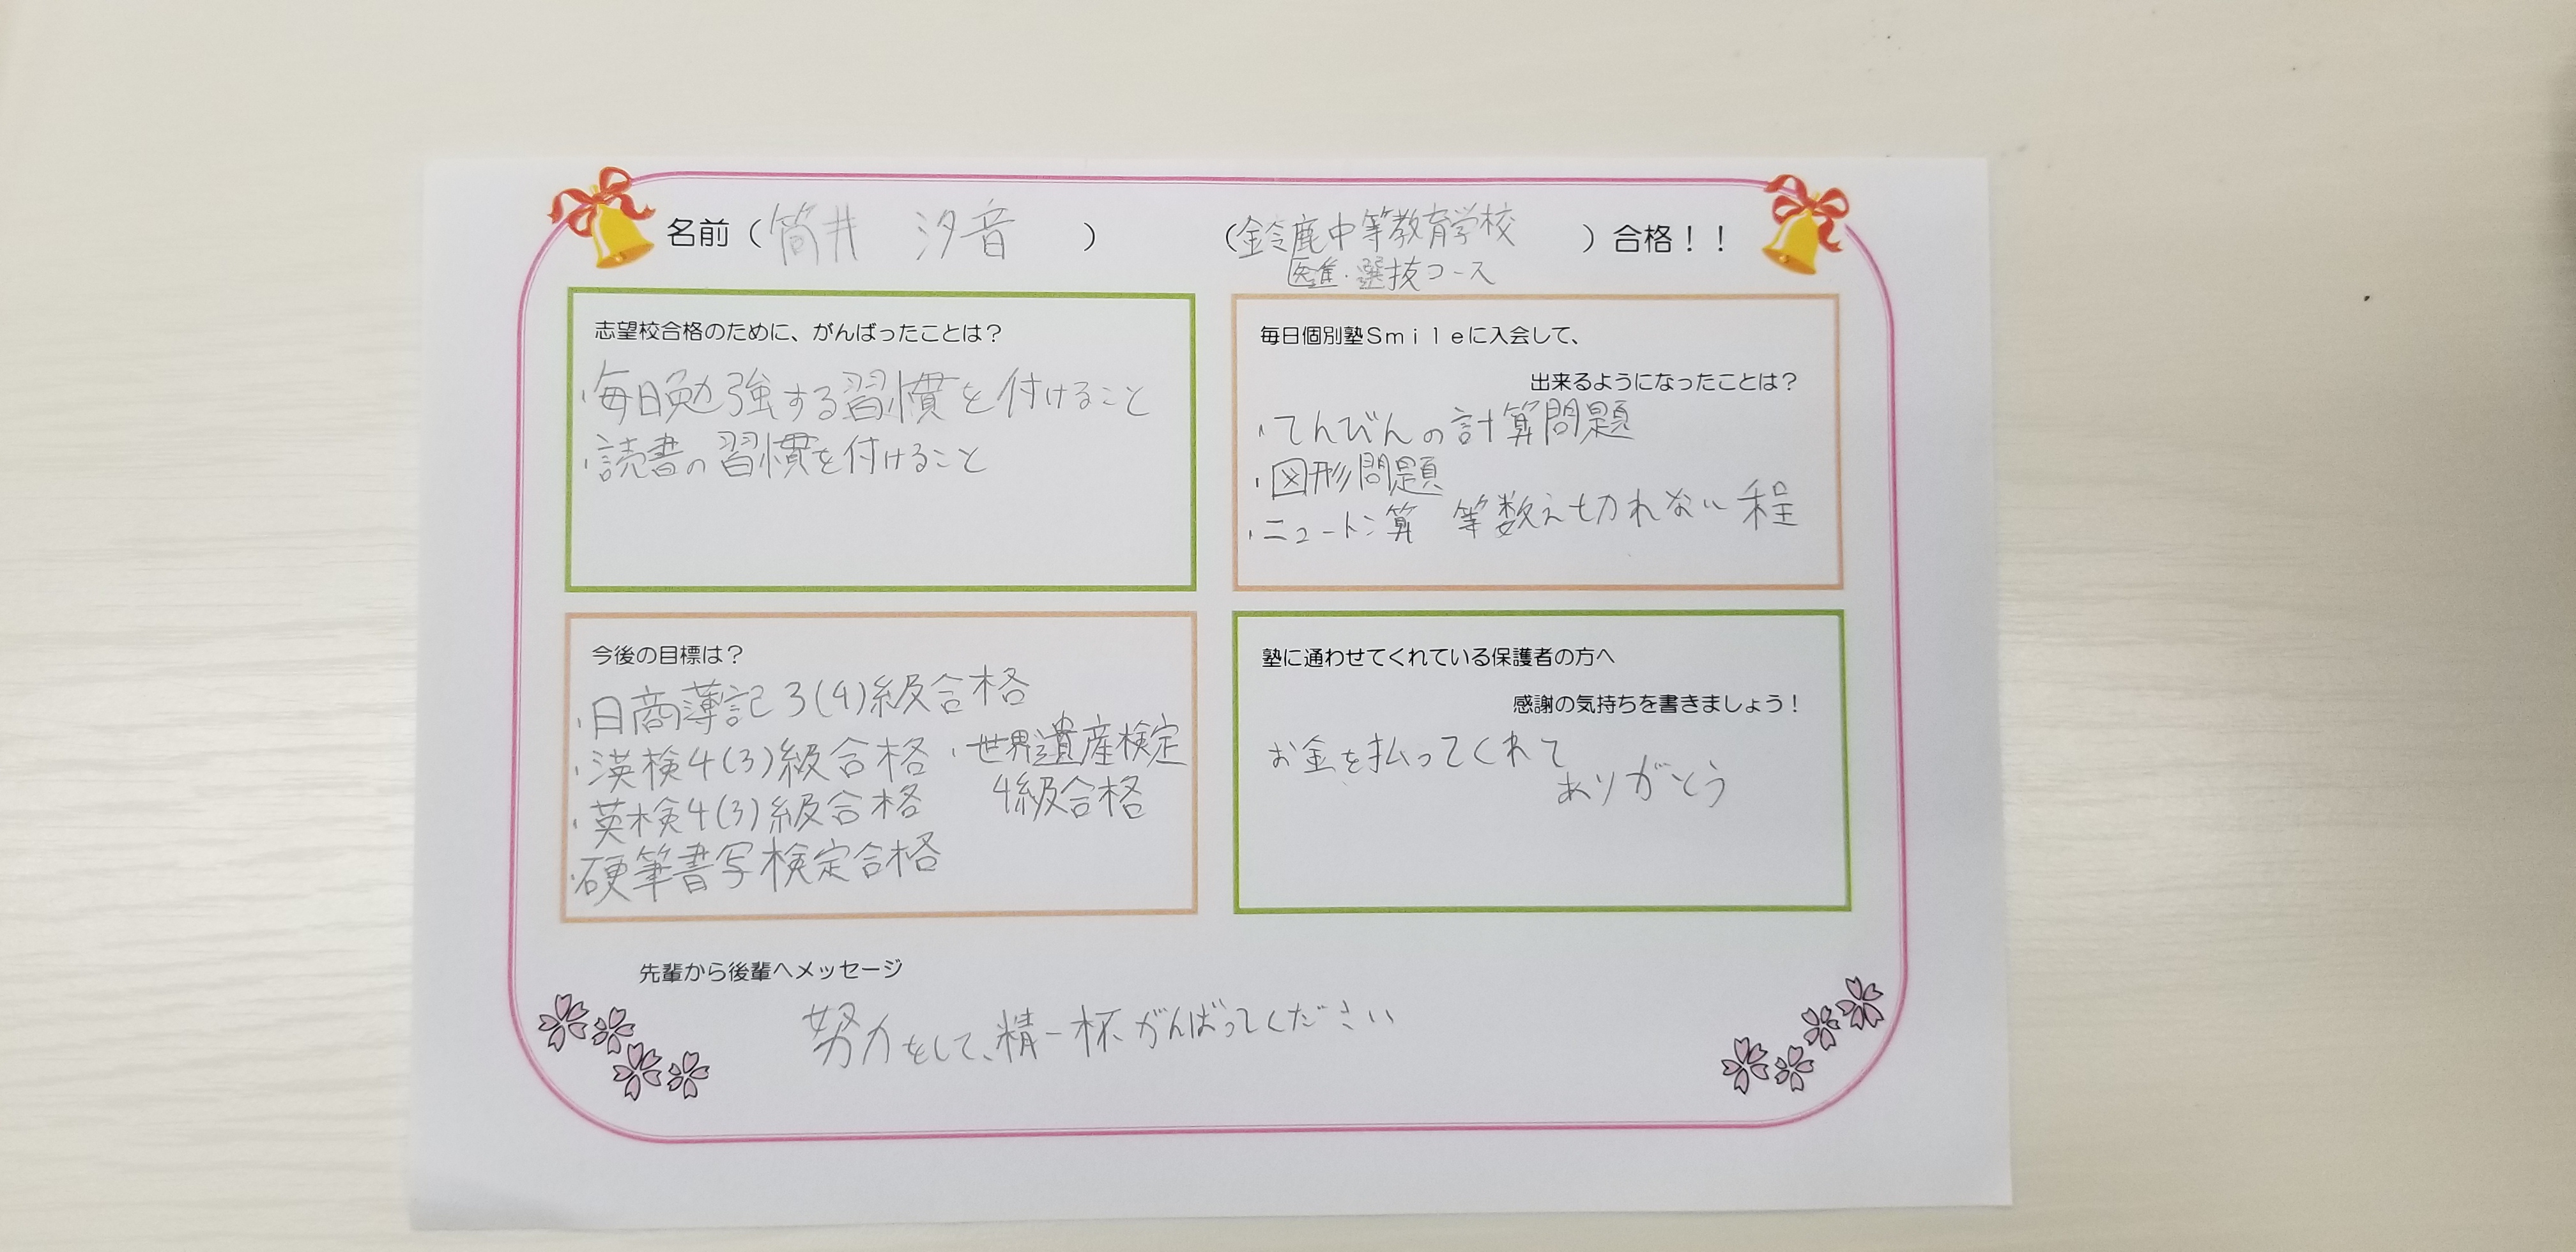 名前（筒井 汐音）（鈴鹿中等教育学校）合格！！
医進・選抜コース
志望校合格のために、がんばったことは？
・毎日勉強する習慣を付けること
・読書の習慣を付けること
毎日個別塾Smileに入会して、
出来るようになったことは？
・てんびんの計算問題
・図形問題
・ニュートン算 等数えきれない程
今後の目標は？
・日商簿記3(4)級合格
・漢検4(3)級合格
・英検4(3)級合格
・硬筆書写検定合格
・世界遺産検定
4級合格
塾に通わせてくれている保護者の方へ
感謝の気持ちを書きましょう！
お金を払ってくれて
ありがとう
先輩から後輩へメッセージ
努力をして、精一杯、がんばってください